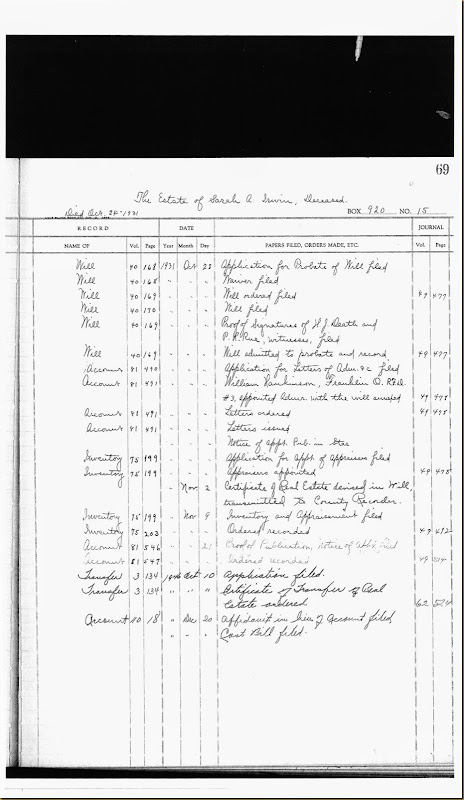 69
The Estate of Sarah A Irwin, Deceased.
Died Oct. 24-1931 BOX 920 NO. 15
RECORD DATE JOURNAL
NAME OF Vol. Page Year Month Day PAPERS FILED, ORDERS MADE, ETC. Vol. Page
Will 40 168 1931 Oct 28 Application for Probate of Will filed
Will 40 168 " " " Waiver filed
Will 40 169 " " " Will ordered filed 49 477
Will 40 170 " " " Will filed
Will 40 169 " " " Proof of Signatures of H. J. Death and
P. R. Rue, witnesses, filed
Will 40 169 " " " Will admitted to probate and record 49 477
Account 81 490 " " " Application for Letters of Adm. &c filed
Account 81 491 " " " William Rankinson, Franklin O. R.R.
#3, appointed Admr. with the will annexed 49 478
Account 81 491 " " " Letters ordered 49 478
Account 81 491 " " " Letters issued
" " " Notice of Appt. Pub. in Star
Inventory 75 199 " " " Application for Appt. of Appraisers filed
Inventory 75 199 " " " Appraisers appointed 49 478
Nov 2 Certificate of Real Estate devised in Will,
transmitted to County Recorder.
Inventory 75 199 " Nov 9 Inventory and Appraisement filed
Inventory 75 203 " " " Ordered recorded 49 492
Account 81 546 " " 21 Proof of Publication, Notice of Appt. filed
Account 81 547 " " " Ordered recorded 49 514
Transfer 3 134 Oct 10 Application filed.
Transfer 3 134 " " " Certificate of Transfer of Real
Estate ordered 62 524
Account 10 18 " Dec 20 Affidavit in lieu of Account filed
" " " Cost Bill filed.